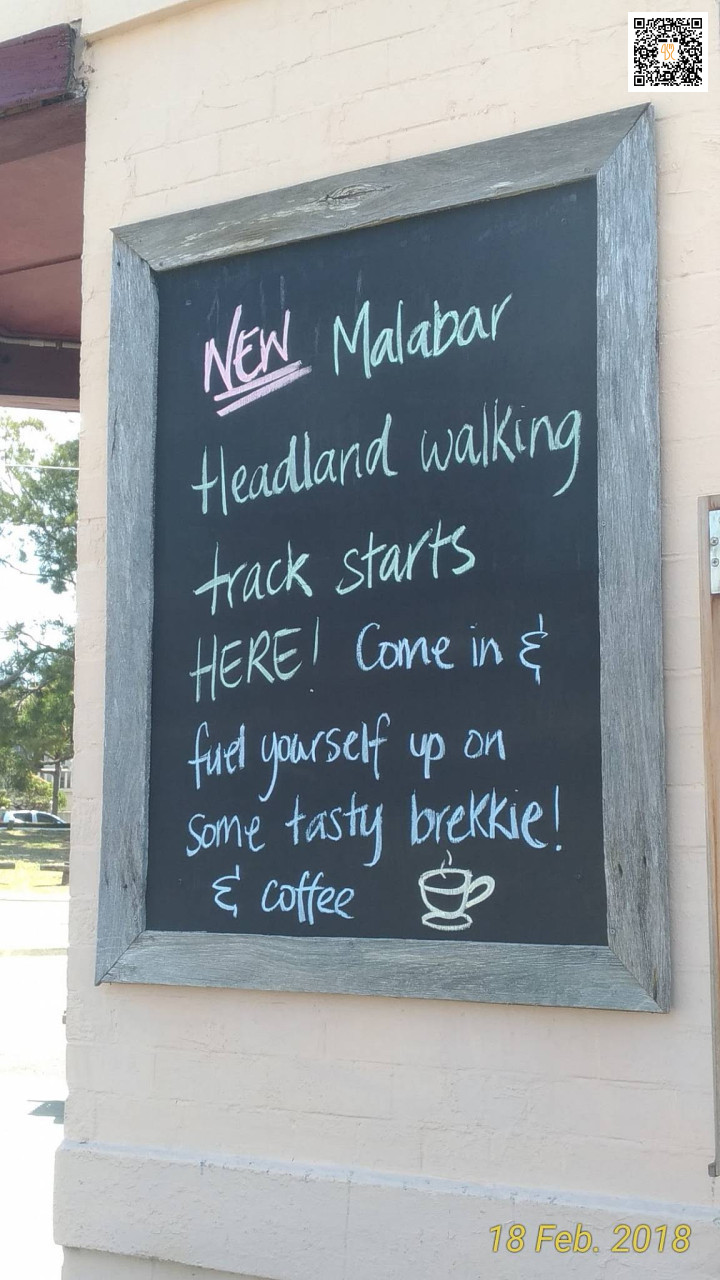 NEW Malabar
Headland walking
track starts
HERE! Come in &
fuel yourself up on
some tasty brekkie!
& coffee
18 Feb. 2018